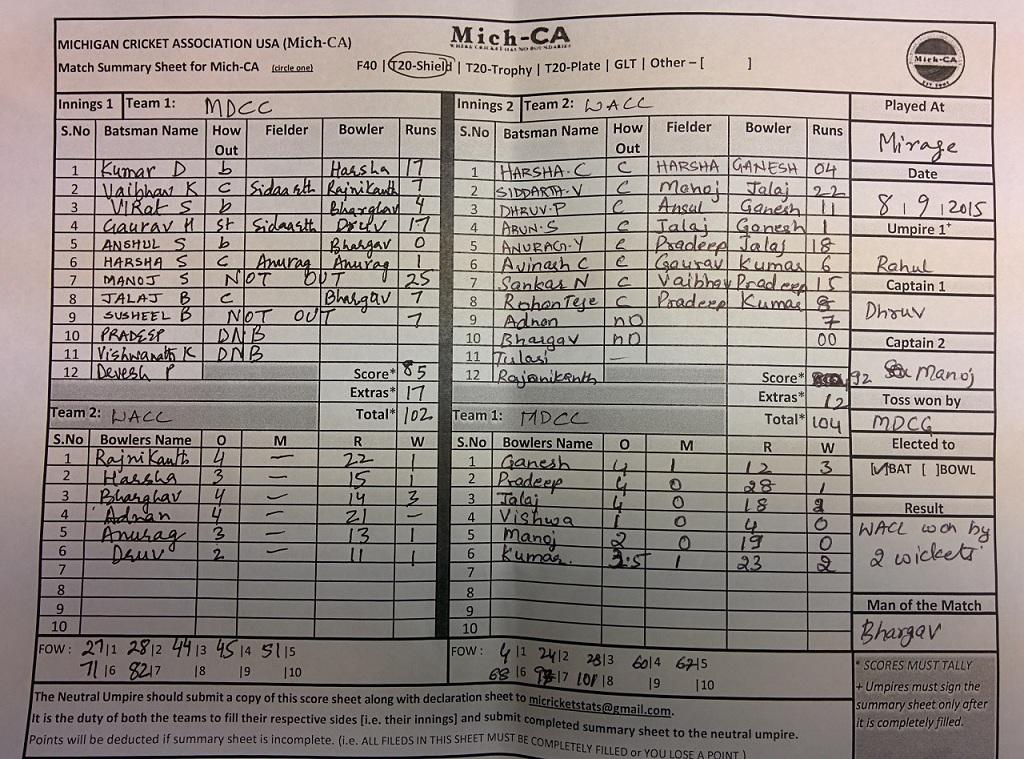 Mich-CA
WHERE CRICKET HAS NO BOUNDARIES
MICHIGAN CRICKET ASSOCIATION USA (Mich-CA)
Match Summary Sheet for Mich-CA (circle one) F40 | T20-Shield | T20-Trophy | T20-Plate | GLT | Other – [ ]
Mich-CA
Innings 1 Team 1: MDCC
S.No Batsman Name How Out Fielder Bowler Runs
1 Kumar D b Harsha 17
2 Vaibhav K C Sidaarth Rajnikanth 7
3 VIRat S b Bharghav 4
4 Gaurav H st Sidaarth Druv 17
5 ANSHUL S b Bhargav 0
6 HARSHA S C Anurag Anurag 1
7 MANOJ S NOT OUT 25
8 JALAJ B C Bhargav 7
9 SUSHEEL B NOT OUT 7
10 PRADEEP DNB
11 Vishwanath K DNB
12 Devesh P
Score* 85
Extras* 17
Total* 102
Team 2: WACC
S.No Bowlers Name O M R W
1 Rajnikanth 4 – 22 1
2 Harsha 3 – 15 1
3 Bharghav 4 – 14 3
4 Adnan 4 – 21 –
5 Anurag 3 – 13 1
6 Druv 2 – 11 1
7
8
9
10
FOW : 27|1 28|2 44|3 45|4 51|5
71|6 82|7 |8 |9 |10
Innings 2 Team 2: WACC
S.No Batsman Name How Out Fielder Bowler Runs
1 HARSHA.C C HARSHA GANESH 04
2 SIDDARTH.V C Manoj Jalaj 22
3 DHRUV.P C Ansul Ganesh 11
4 ARUN.S C Jalaj Ganesh 1
5 ANURAG.Y C Pradeep Jalaj 18
6 Avinash C C Gaurav Kumar 6
7 Sankar N C Vaibhav Pradeep 15
8 Rohan Teje C Pradeep Kumar 8
9 Adnan no 7
10 Bhargav no 00
11 Tulasi —
12 Rajanikanth
Score* 92
Extras* 12
Total* 104
Team 1: MDCC
S.No Bowlers Name O M R W
1 Ganesh 4 1 12 3
2 Pradeep 4 0 28 1
3 Jalaj 4 0 18 2
4 Vishwa 1 0 4 0
5 Manoj 2 0 19 0
6 Kumar. 3.5 1 23 2
7
8
9
10
FOW : 4|1 24|2 28|3 60|4 67|5
68|6 |7 101|8 |9 |10
Played At
Mirage
Date
8 | 9 | 2015
Umpire 1+
Rahul
Captain 1
Dhruv
Captain 2
Manoj
Toss won by
MDCC
Elected to
[✓]BAT [ ]BOWL
Result
WACC won by
2 wickets
Man of the Match
Bhargav
* SCORES MUST TALLY
+ Umpires must sign the
summary sheet only after
it is completely filled.
The Neutral Umpire should submit a copy of this score sheet along with declaration sheet to micricketstats@gmail.com.
It is the duty of both the teams to fill their respective sides [i.e. their innings) and submit completed summary sheet to the neutral umpire.
Points will be deducted if summary sheet is incomplete. (i.e. ALL FILEDS IN THIS SHEET MUST BE COMPLETELY FILLED or YOU LOSE A POINT )